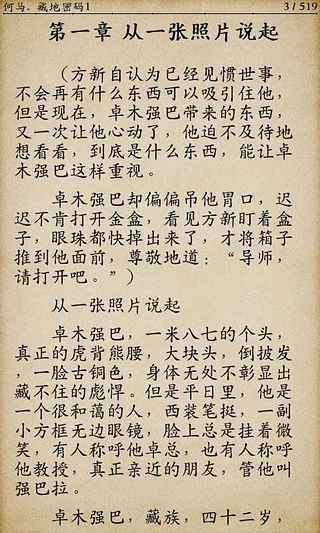 何马.藏地密码1 3/519
第一章 从一张照片说起
（方新自认为已经见惯世事，
不会再有什么东西可以吸引住他，
但是现在，卓木强巴带来的东西，
又一次让他心动了，他迫不及待地
想看看，到底是什么东西，能让卓
木强巴这样重视。
卓木强巴却偏偏吊他胃口，迟
迟不肯打开金盒，看见方新盯着盒
子，眼珠都快掉出来了，才将箱子
推到他面前，尊敬地道：“导师，
请打开吧。”）
从一张照片说起
卓木强巴，一米八七的个头，
真正的虎背熊腰，大块头，倒披发
，一脸古铜色，身体无处不彰显出
藏不住的彪悍。但是平日里，他是
一个很和蔼的人，西装笔挺，一副
小方框无边眼镜，脸上总是挂着微
笑，有人称呼他卓总，也有人称呼
他教授，真正亲近的朋友，管他叫
强巴拉。
卓木强巴，藏族，四十二岁，